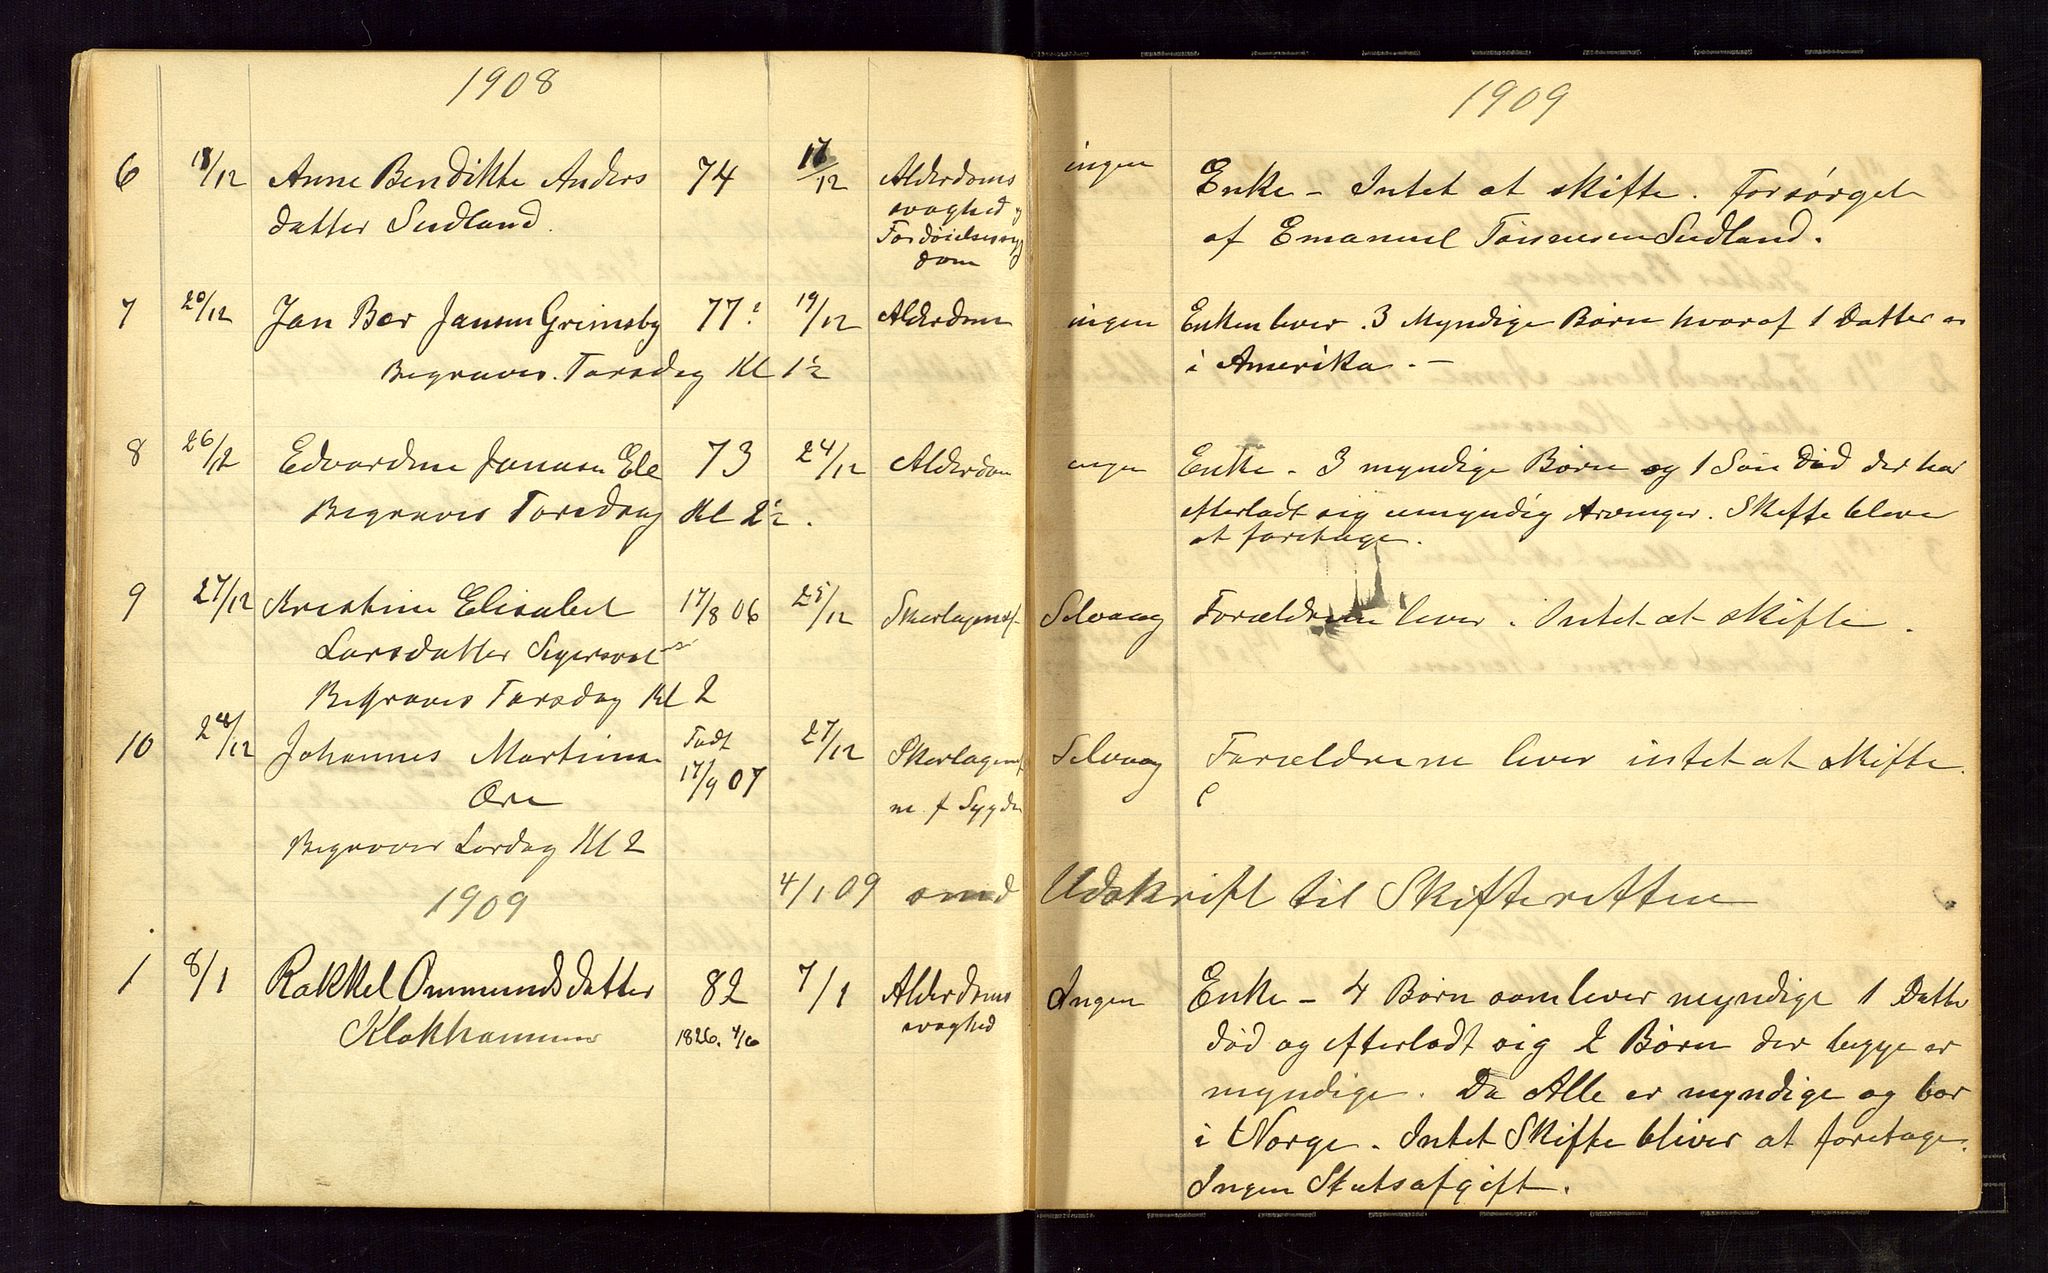 1908
6 18/12 Anne Bendikte Anders 74 17/12 Alderdoms
datter Sudland. svaghed og
Fordøielsessyg
dom
7 20/12 Jan Ber Jansen Grimsby 77? 19/12 Alderdom
Begraves Torsdag Kl 1½
8 26/12 Edvardine Jonasen Ele 73 24/12 Alderdom
Begraves Torsdag Kl 2½.
9 27/12 Kristine Elisabet 17/8 06 25/12 Skarlagensf
Larsdatter
Begraves Torsdag Kl 2
10 28/12 Johannes Martinsen Født 27/12 Skarlagensf
Øre 17/9 07 m. f Sygdo
Begraves Lørdag Kl 2
1909 4/1 09 send
1 8/1 Rakkel Ommundsdatter 82 7/1 Alderdoms
Klokhammer 1826. 4/6 svaghed
1909
ingen Enke – Intet at skifte. Forsørget
af Emanuel Tønnesen Sudland.
ingen Enken lever. 3 Myndige Børn hvoraf 1 Datter er
i Amerika. –
ingen Enke – 3 myndige Børn og 1 Søn død der har
efterladt sig umyndig Arvinger. Skifte bliver
at foretage.
Selvaag Forældrene lever. Intet at skifte.
Selvaag Forældrene lever intet at skifte.
Udskrift til Skifteretten
Ingen Enke – 4 Børn som lever myndige 1 Datter
død og efterladt sig 2 Børn der begge er
myndige. Da Alle er myndige og bor
i Norge. Intet Skifte bliver at foretage.
Ingen Statsafgift.